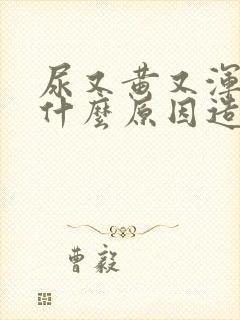 尿又黄又渾
什麼原因造
曹毅